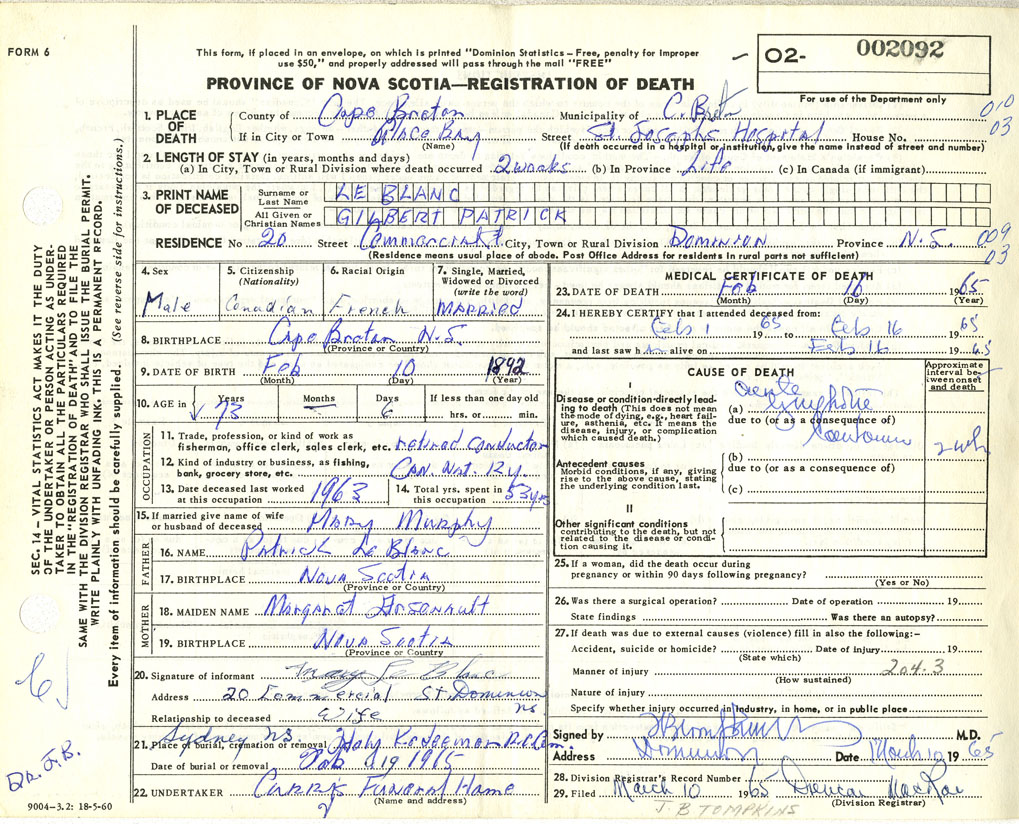 FORM 6
This form, if placed in an envelope, on which is printed "Dominion Statistics – Free, penalty for improper
use $50," and properly addressed will pass through the mail "FREE"
02- 002092
For use of the Department only
PROVINCE OF NOVA SCOTIA—REGISTRATION OF DEATH
010
03
1. PLACE OF DEATH
County of Cape Breton Municipality of C. Breton
If in City or Town Glace Bay Street St. Josephs Hospital House No.
(Name) (If death occurred in a hospital or institution, give the name instead of street and number)
2. LENGTH OF STAY (in years, months and days)
(a) In City, Town or Rural Division where death occurred 2 weeks (b) In Province Life (c) In Canada (if immigrant)
3. PRINT NAME OF DECEASED
Surname or Last Name LE BLANC
All Given or Christian Names GILBERT PATRICK
RESIDENCE No 20 Street Commercial St City, Town or Rural Division DOMINION Province N.S.
009
03
(Residence means usual place of abode. Post Office Address for residents in rural parts not sufficient)
4. Sex Male
5. Citizenship (Nationality) Canadian
6. Racial Origin French
7. Single, Married, Widowed or Divorced (write the word) MARRIED
8. BIRTHPLACE Cape Breton N.S.
(Province or Country)
9. DATE OF BIRTH Feb 10 1892
(Month) (Day) (Year)
10. AGE in Years 73 Months — Days 6 If less than one day old hrs. or min.
OCCUPATION
11. Trade, profession, or kind of work as fisherman, office clerk, sales clerk, etc. retired conductor
12. Kind of industry or business, as fishing, bank, grocery store, etc. CAN. Nat. Ry.
13. Date deceased last worked at this occupation 1963
14. Total yrs. spent in this occupation 53 yrs
15. If married give name of wife or husband of deceased Mary Murphy
FATHER
16. NAME Patrick Le Blanc
17. BIRTHPLACE Nova Scotia
(Province or Country)
MOTHER
18. MAIDEN NAME Margaret Arsenault
19. BIRTHPLACE Nova Scotia
(Province or Country)
20. Signature of informant Mary Le Blanc
Address 20 Commercial St. Dominion NS.
Relationship to deceased Wife
21. Place of burial, cremation or removal Sydney NS. Holy Redeemer R.C. Cem.
Date of burial or removal Feb 19 1965
22. UNDERTAKER Curry's Funeral Home
(Name and address)
MEDICAL CERTIFICATE OF DEATH
23. DATE OF DEATH Feb 16 1965
(Month) (Day) (Year)
24. I HEREBY CERTIFY that I attended deceased from:
Feb 1 1965 to Feb 16 1965
and last saw him alive on Feb 16 1965
CAUSE OF DEATH
Approximate interval between onset and death
I
Disease or condition directly leading to death (This does not mean the mode of dying, e.g., heart failure, asthenia, etc. It means the disease, injury, or complication which caused death.)
(a) acute lymphatic
due to (or as a consequence of)
2 wks
Antecedent causes
Morbid conditions, if any, giving rise to the above cause, stating the underlying condition last.
(b)
due to (or as a consequence of)
(c)
II
Other significant conditions
contributing to the death, but not related to the disease or condition causing it.
25. If a woman, did the death occur during pregnancy or within 90 days following pregnancy?
(Yes or No)
26. Was there a surgical operation? Date of operation 19
State findings Was there an autopsy?
27. If death was due to external causes (violence) fill in also the following:–
Accident, suicide or homicide? Date of injury 19
(State which)
Manner of injury 204-3
(How sustained)
Nature of injury
Specify whether injury occurred in industry, in home, or in public place
Signed by M.D.
Address Dominion Date March 10 1965
28. Division Registrar's Record Number
29. Filed March 10 1965 Duncan MacRae
(Division Registrar)
J. B TOMPKINS
SEC. 14 – VITAL STATISTICS ACT MAKES IT THE DUTY
OF THE UNDERTAKER OR PERSON ACTING AS UNDER-
TAKER TO OBTAIN ALL THE PARTICULARS REQUIRED
IN THE "REGISTRATION OF DEATH" AND TO FILE THE
SAME WITH THE DIVISION REGISTRAR WHO SHALL ISSUE THE BURIAL PERMIT.
WRITE PLAINLY WITH UNFADING INK. THIS IS A PERMANENT RECORD.
Every item of information should be carefully supplied. (See reverse side for instructions.)
9004–3.2: 18-5-60